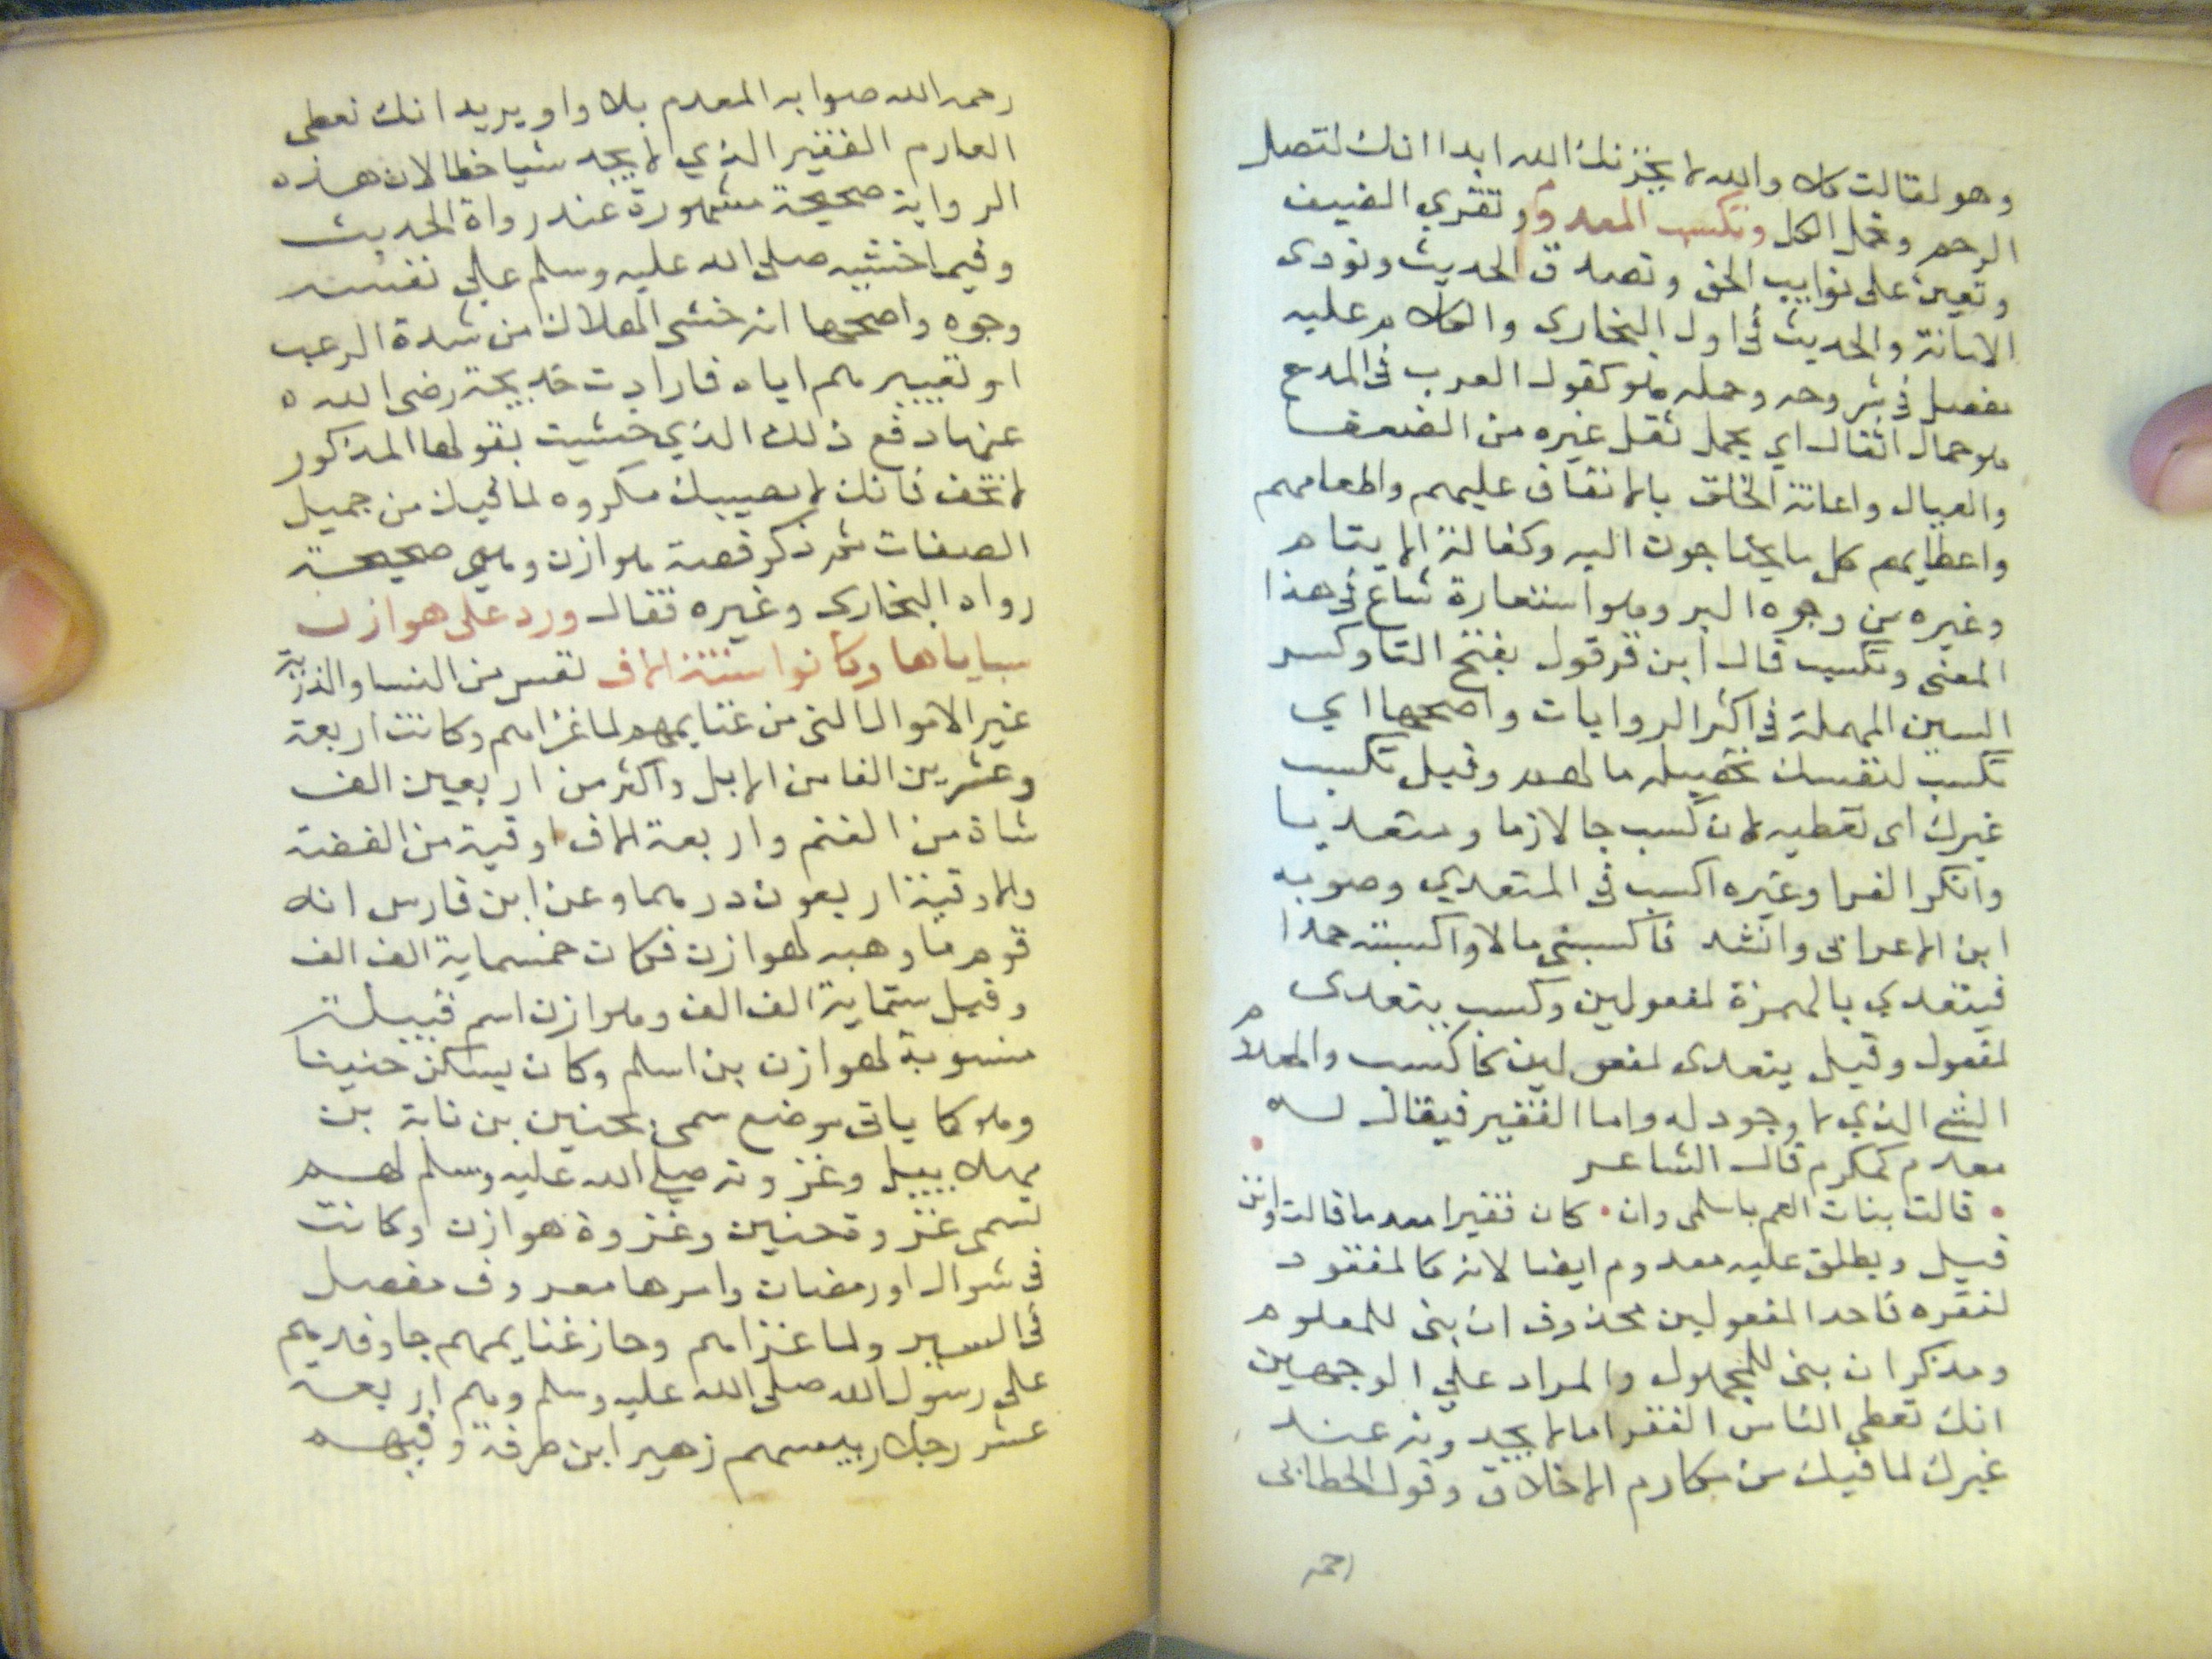 وهو لقالت كلا والله لا يخزنك الله ابدا انك لتصل
الرحم وتحمل الكل وتكسب المعدوم وتقري الضيف
وتعين على نوايب الحق وتصدق الحديث وتودى
الامانة والحديث في اول البخارى والكلام عليه
مفصل في شروحه وحمله هو كقول العرب في المدح
هو حمال اثقال اي يحمل ثقل غيره من الضعفا
والعيال واعانة الخلق بالانفاق عليهم واطعامهم
واعطايهم كل ما يحتاجون اليه وكفالة الايتام
وغيره من وجوه البر وهو استعارة شاع في هذا
المعنى وتكسب قال ابن قرقول بفتح التا وكسر
السين المهملة في اكثر الروايات واصحها اي
تكسب لنفسك تحصيله مالهم وقيل تكسب
غيرك اى تعطيه لان كسب جا لازما ومتعديا
وانكر الفرا وغيره اكسب في المتعدي وصوبه
ابن الاعرابى وانشد فاكسبنى مالا واكسبته حمدا
فيتعدي بالهمزة لمفعولين وكسب يتعدى
لمفعول وقيل يتعدى لمفعولين كاكسب والمعدوم
الشي الذي لا وجود له واما الفقير فيقال له
معدم كمكرم قال الشاعر
قالت بنات العم ياسلمى وان كان فقيرا معدما قالت وانن
قيل ويطلق عليه معدوم ايضا لانه كالمفقود
لفقره فاحد المفعولين محذوف ان بنى للمعلوم
ومذكر ان بنى للمجهول والمراد علي الوجهين
انك تعطي الناس الفقرا ما لا يجدونه عند
غيرك لما فيك من مكارم الاخلاق وقول الخطابى
رحمه
رحمه الله صوابه المعدم بلا واو يريد انك تعطى
العارم الفقير الذي لا يجد شيا خطا لان هذه
الرواية صحيحة مشهورة عند رواة الحديث
وفيما خشيه صلى الله عليه وسلم علي نفسه
وجوه واصحها انه خشى الهلاك من شدة الرعب
او تعييرهم اياه فارادت خديجة رضى الله
عنها دفع ذلك الذي خشيت بقولها المذكور
لا تخف فانك لا يصيبك مكروه لما فيك من جميل
الصفات ثم ذكر قصة هوازن وهي صحيحة
رواه البخارى وغيره فقال ورد على هوازن
سباياها وكانوا ستة الاف نفس من النسا والذرية
غير الاموال التى من غنايمهم لما غزاهم وكانت اربعة
وعشرين الفا من الابل واكثر من اربعين الف
شاة من الغنم واربعة الاف اوقية من الفضة
والاوقية اربعون درهما وعن ابن فارس انه
قوم ما وهبه لهوازن فكان خمسماية الف الف
وقيل ستماية الف الف وهوازن اسم قبيلة
منسوبة لهوازن بن اسلم وكان يسكن حنينا
وهو كما ياتى موضع سمى بحنين بن نابة بن
مهلاييل وغزوته صلي الله عليه وسلم لهم
تسمى غزوة حنين وغزوة هوازن وكانت
فى شوال او رمضان وامرها معروف مفصل
فى السير ولما غزاهم وحاز غنايمهم جا وفدهم
على رسول الله صلى الله عليه وسلم وهم اربعة
عشر رجلا رييسهم زهير ابن طرفة وفيهم